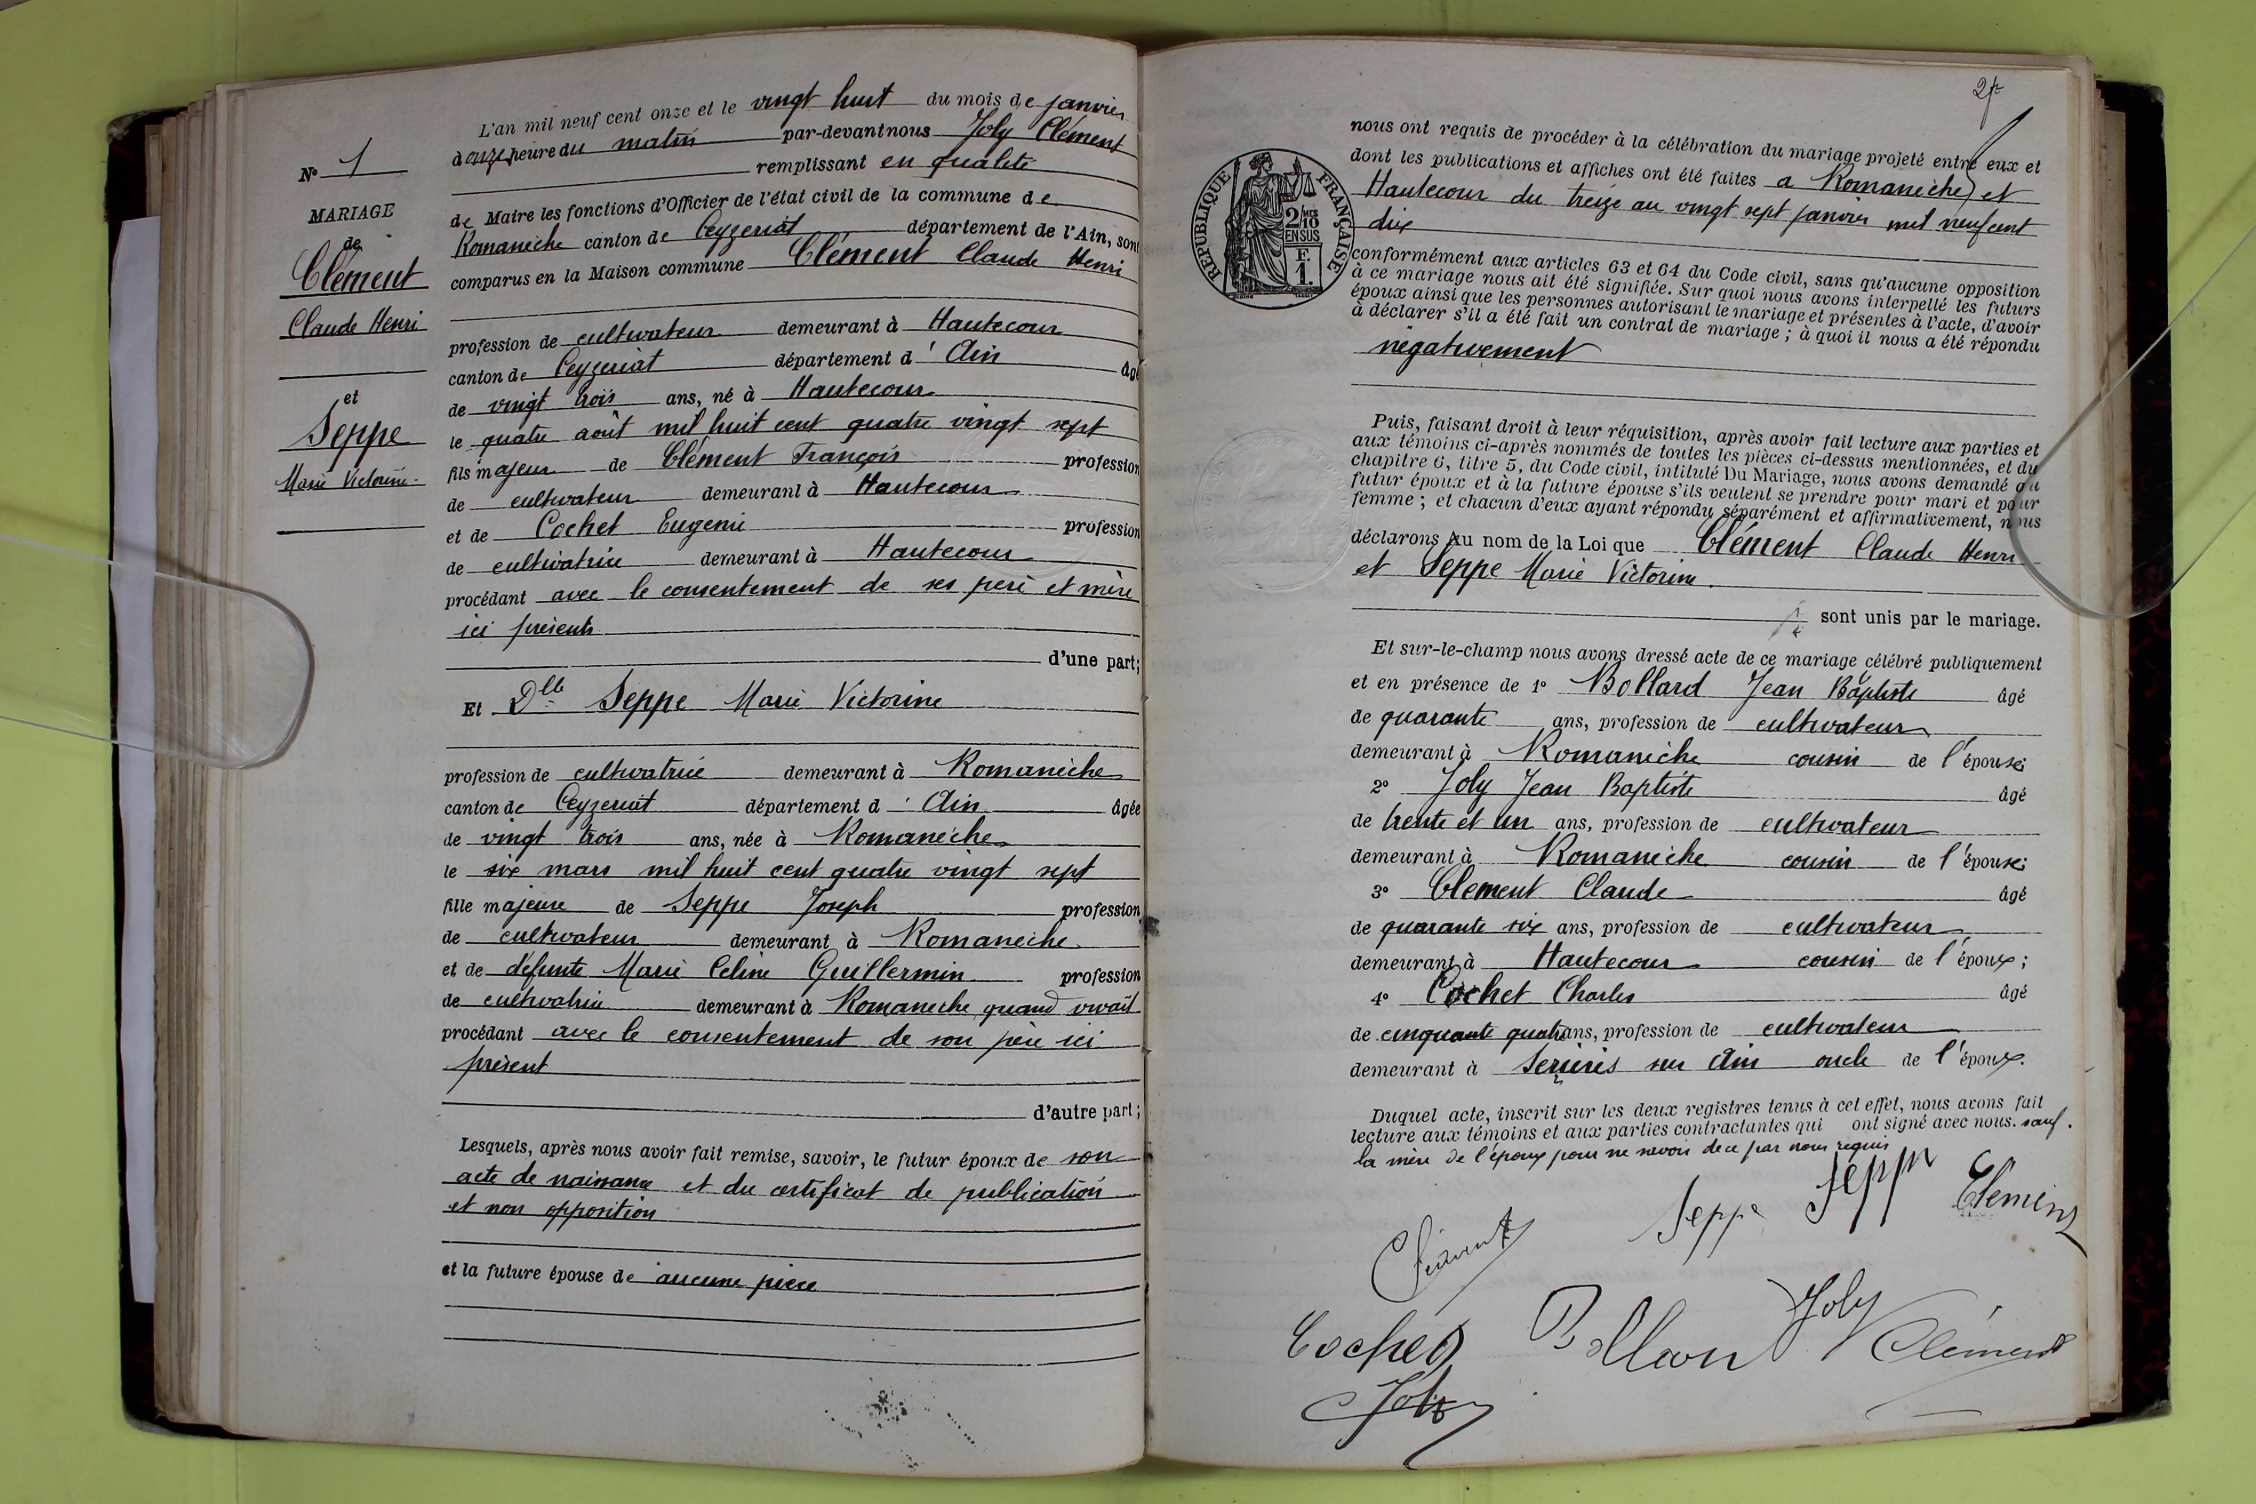 N° 1
MARIAGE
de
Clément
Claude Henri
et
Seppe
Marie Victorine
L'an mil neuf cent onze et le vingt huit du mois de janvier
à onze heure du matin par-devant nous Joly Clément
remplissant en qualité
de Maire les fonctions d'Officier de l'état civil de la commune de
Romanèche canton de Ceyzeriat département de l'Ain, sont
comparus en la Maison commune Clément Claude Henri
profession de cultivateur demeurant à Hautecour
canton de Ceyzeriat département d'Ain âgé
de vingt trois ans, né à Hautecour
le quatre août mil huit cent quatre vingt sept
fils majeur de Clément François profession
de cultivateur demeurant à Hautecour
et de Cochet Eugenie profession
de cultivatrice demeurant à Hautecour
procédant avec le consentement de ses père et mère
ici présents
d'une part;
Et Dlle Seppe Marie Victorine
profession de cultivatrice demeurant à Romanèche
canton de Ceyzeriat département d'Ain âgée
de vingt trois ans, née à Romanèche
le six mars mil huit cent quatre vingt sept
fille majeure de Seppe Joseph profession
de cultivateur demeurant à Romanèche
et de défunte Marie Celine Guillermin profession
de cultivatrice demeurant à Romanèche quand vivait
procédant avec le consentement de son père ici
présent
d'autre part;
Lesquels, après nous avoir fait remise, savoir, le futur époux de son
acte de naissance et du certificat de publication
et non opposition
et la future épouse de aucune pièce
2
RÉPUBLIQUE FRANÇAISE
2 MES
10
EN SUS
F.
1.
nous ont requis de procéder à la célébration du mariage projeté entre eux et
dont les publications et affiches ont été faites a Romanèche et
Hautecour du treize au vingt sept janvier mil neuf cent
dix
conformément aux articles 63 et 64 du Code civil, sans qu'aucune opposition
à ce mariage nous ait été signifiée. Sur quoi nous avons interpellé les futurs
époux ainsi que les personnes autorisant le mariage et présentes à l'acte, d'avoir
à déclarer s'il a été fait un contrat de mariage; à quoi il nous a été répondu
négativement
Puis, faisant droit à leur réquisition, après avoir fait lecture aux parties et
aux témoins ci-après nommés de toutes les pièces ci-dessus mentionnées, et du
chapitre 6, titre 5, du Code civil, intitulé Du Mariage, nous avons demandé au
futur époux et à la future épouse s'ils veulent se prendre pour mari et pour
femme; et chacun d'eux ayant répondu séparément et affirmativement, nous
déclarons au nom de la Loi que Clément Claude Henri
et Seppe Marie Victorine
sont unis par le mariage.
Et sur-le-champ nous avons dressé acte de ce mariage célébré publiquement
et en présence de 1° Bollard Jean Baptiste âgé
de quarante ans, profession de cultivateur
demeurant à Romanèche cousin de l'épouse;
2° Joly Jean Baptiste âgé
de trente et un ans, profession de cultivateur
demeurant à Romanèche cousin de l'épouse;
3° Clement Claude âgé
de quarante six ans, profession de cultivateur
demeurant à Hautecour cousin de l'époux;
4° Cochet Charles âgé
de cinquante quatre ans, profession de cultivateur
demeurant à Serrières sur Ain oncle de l'époux.
Duquel acte, inscrit sur les deux registres tenus à cet effet, nous avons fait
lecture aux témoins et aux parties contractantes qui ont signé avec nous. sauf
la mère de l'époux pour ne savoir de ce par nous requis
Seppe Seppe Clément
Clément
Cochet Bollard Joly Clément
Joly